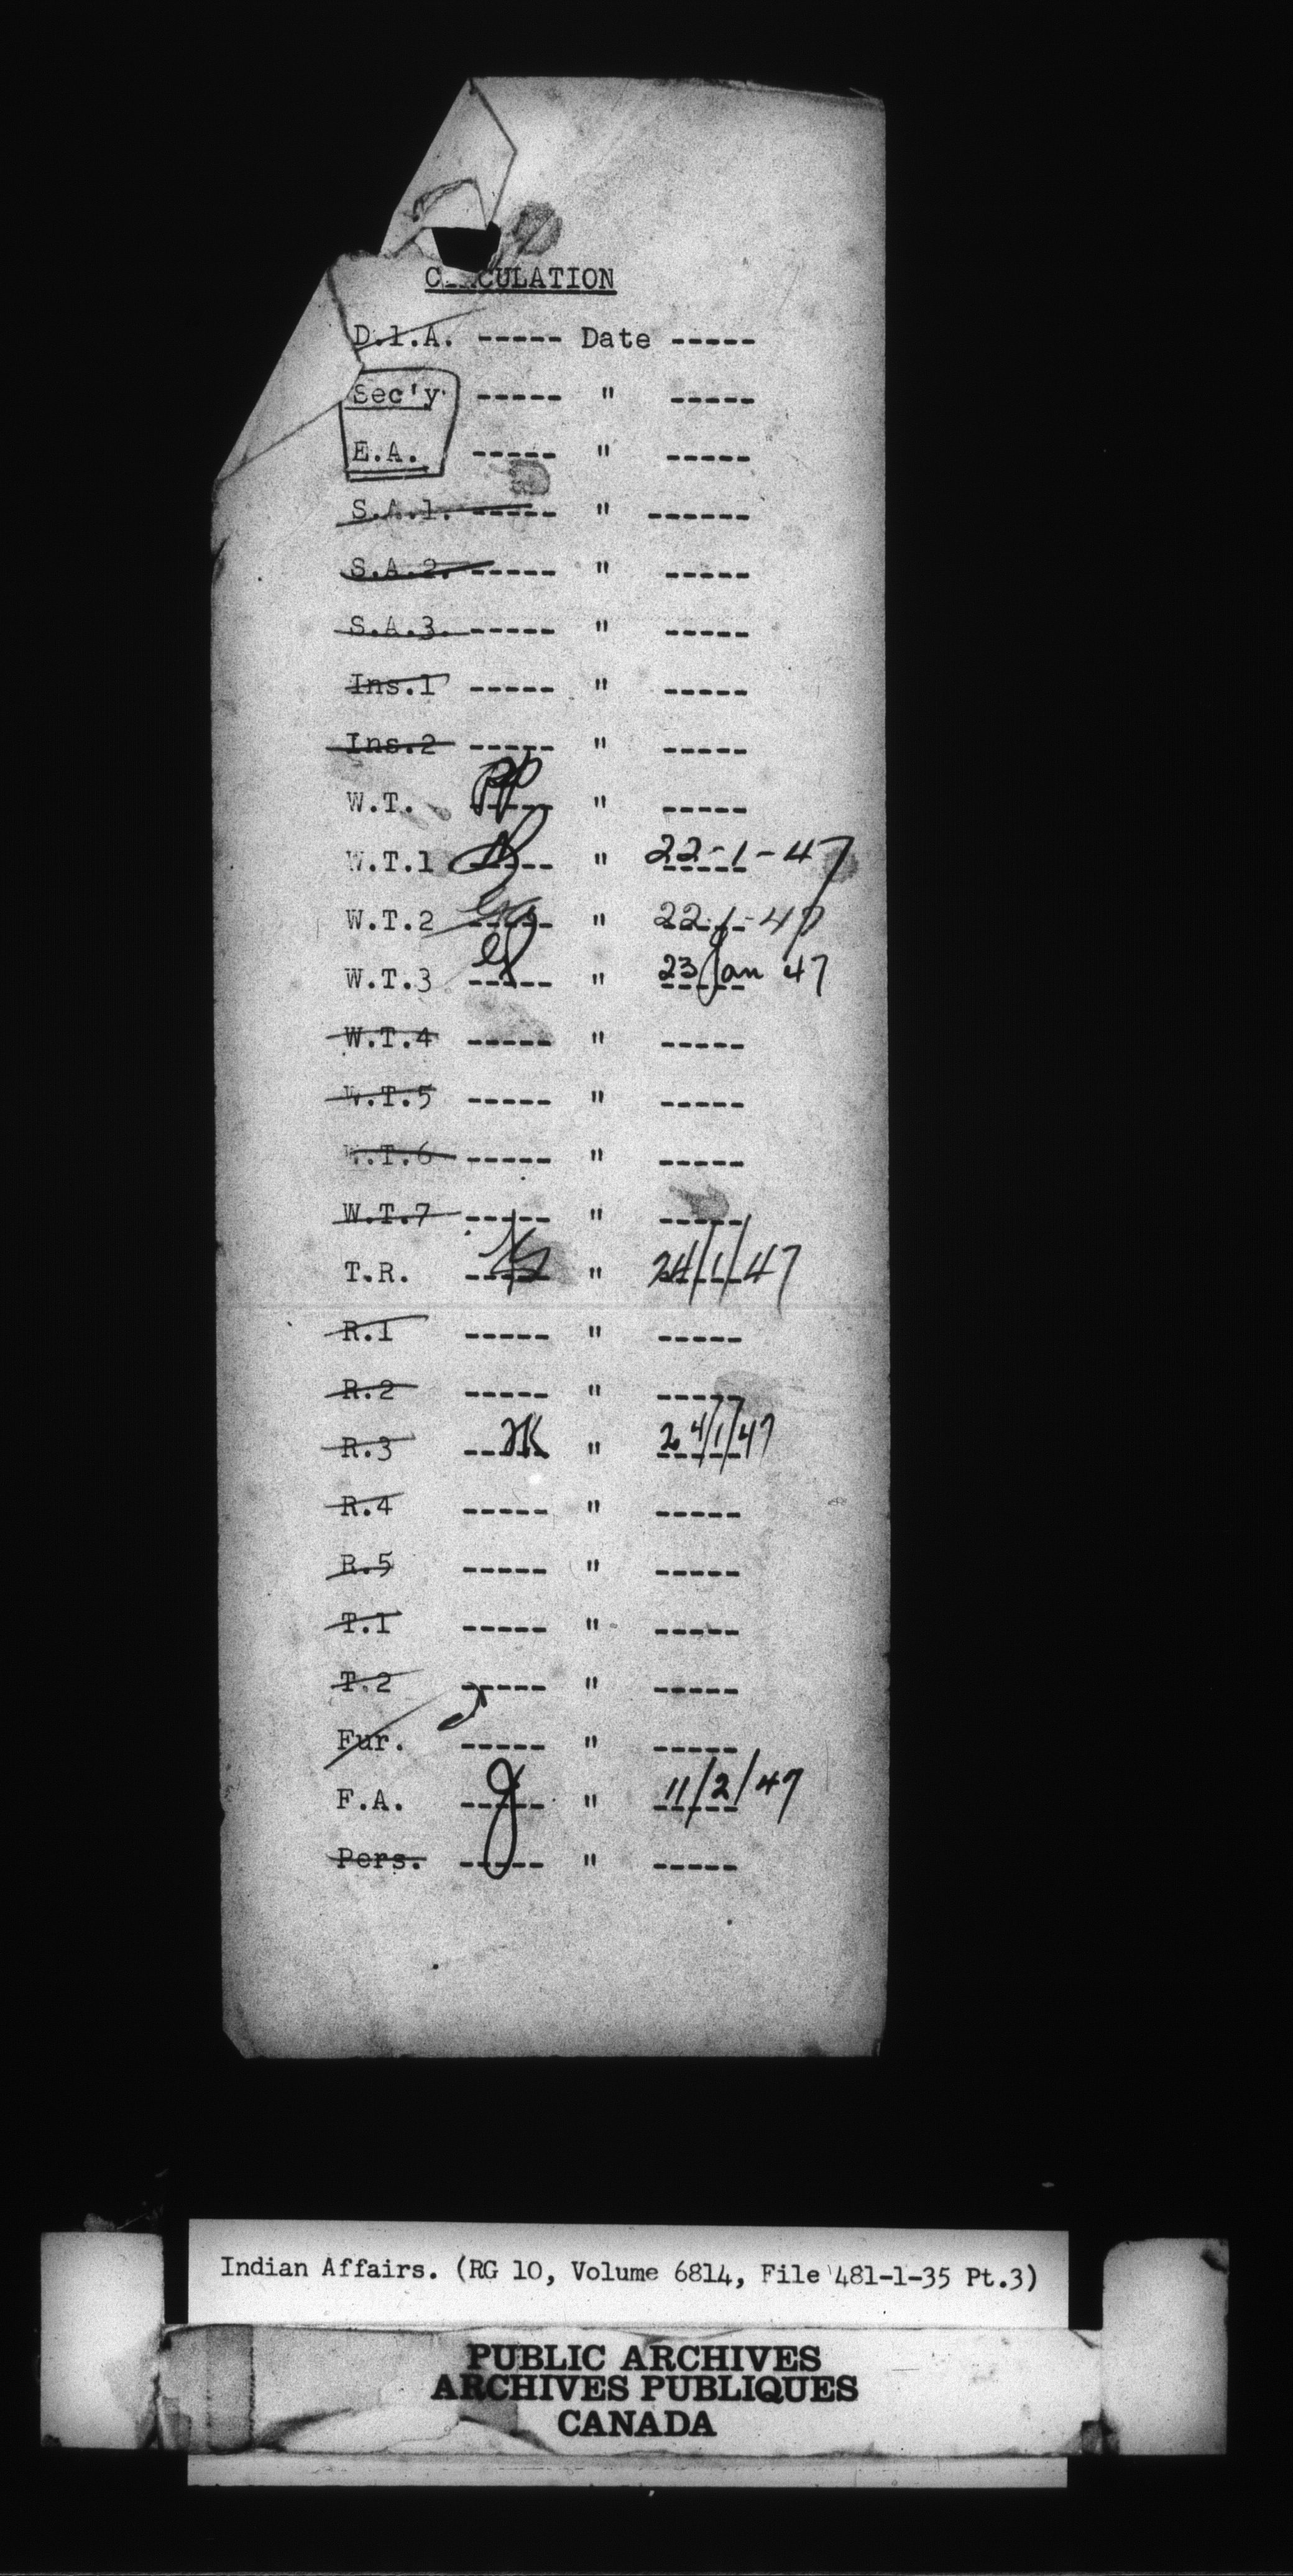 CIRCULATION
D.I.A. ----- Date -----
Sec'y ----- " -----
E.A. ----- " -----
S.A.1. ----- " ------
S.A.2. ----- " -----
S.A.3. ----- " -----
Ins.1 ----- " -----
Ins.2 ----- " -----
W.T. ----- " -----
W.T.1 ----- " 22-1-47
W.T.2 ----- " 22-1-47
W.T.3 ----- " 23 Jan 47
W.T.4 ----- " -----
W.T.5 ----- " -----
W.T.6 ----- " -----
W.T.7 ----- " -----
T.R. ----- " 24/1/47
R.1 ----- " -----
R.2 ----- " -----
R.3 ----- " 24/1/47
R.4 ----- " -----
R.5 ----- " -----
T.1 ----- " -----
T.2 ----- " -----
Fur. ----- " -----
F.A. ----- " 11/2/47
Pers. ----- " -----
Indian Affairs. (RG 10, Volume 6814, File 481-1-35 Pt.3)
PUBLIC ARCHIVES
ARCHIVES PUBLIQUES
CANADA